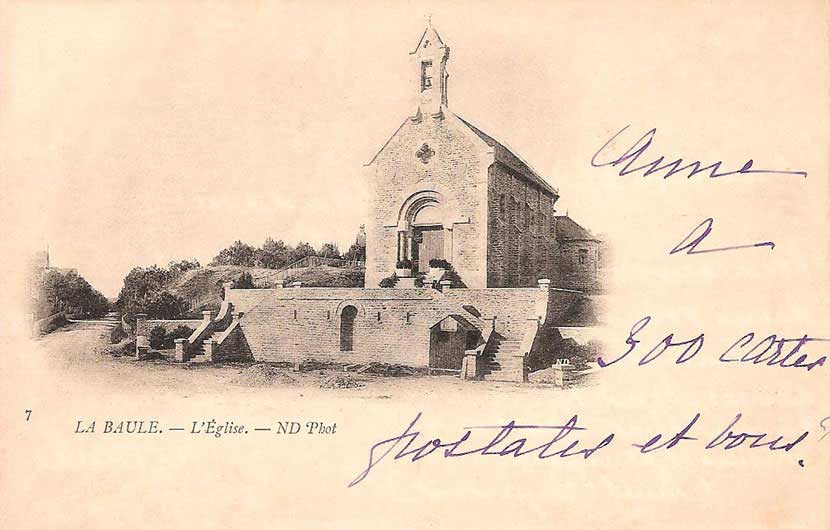 Anne
a
300 cartes
postales et bons
7
LA BAULE. — L'Église. — ND Phot